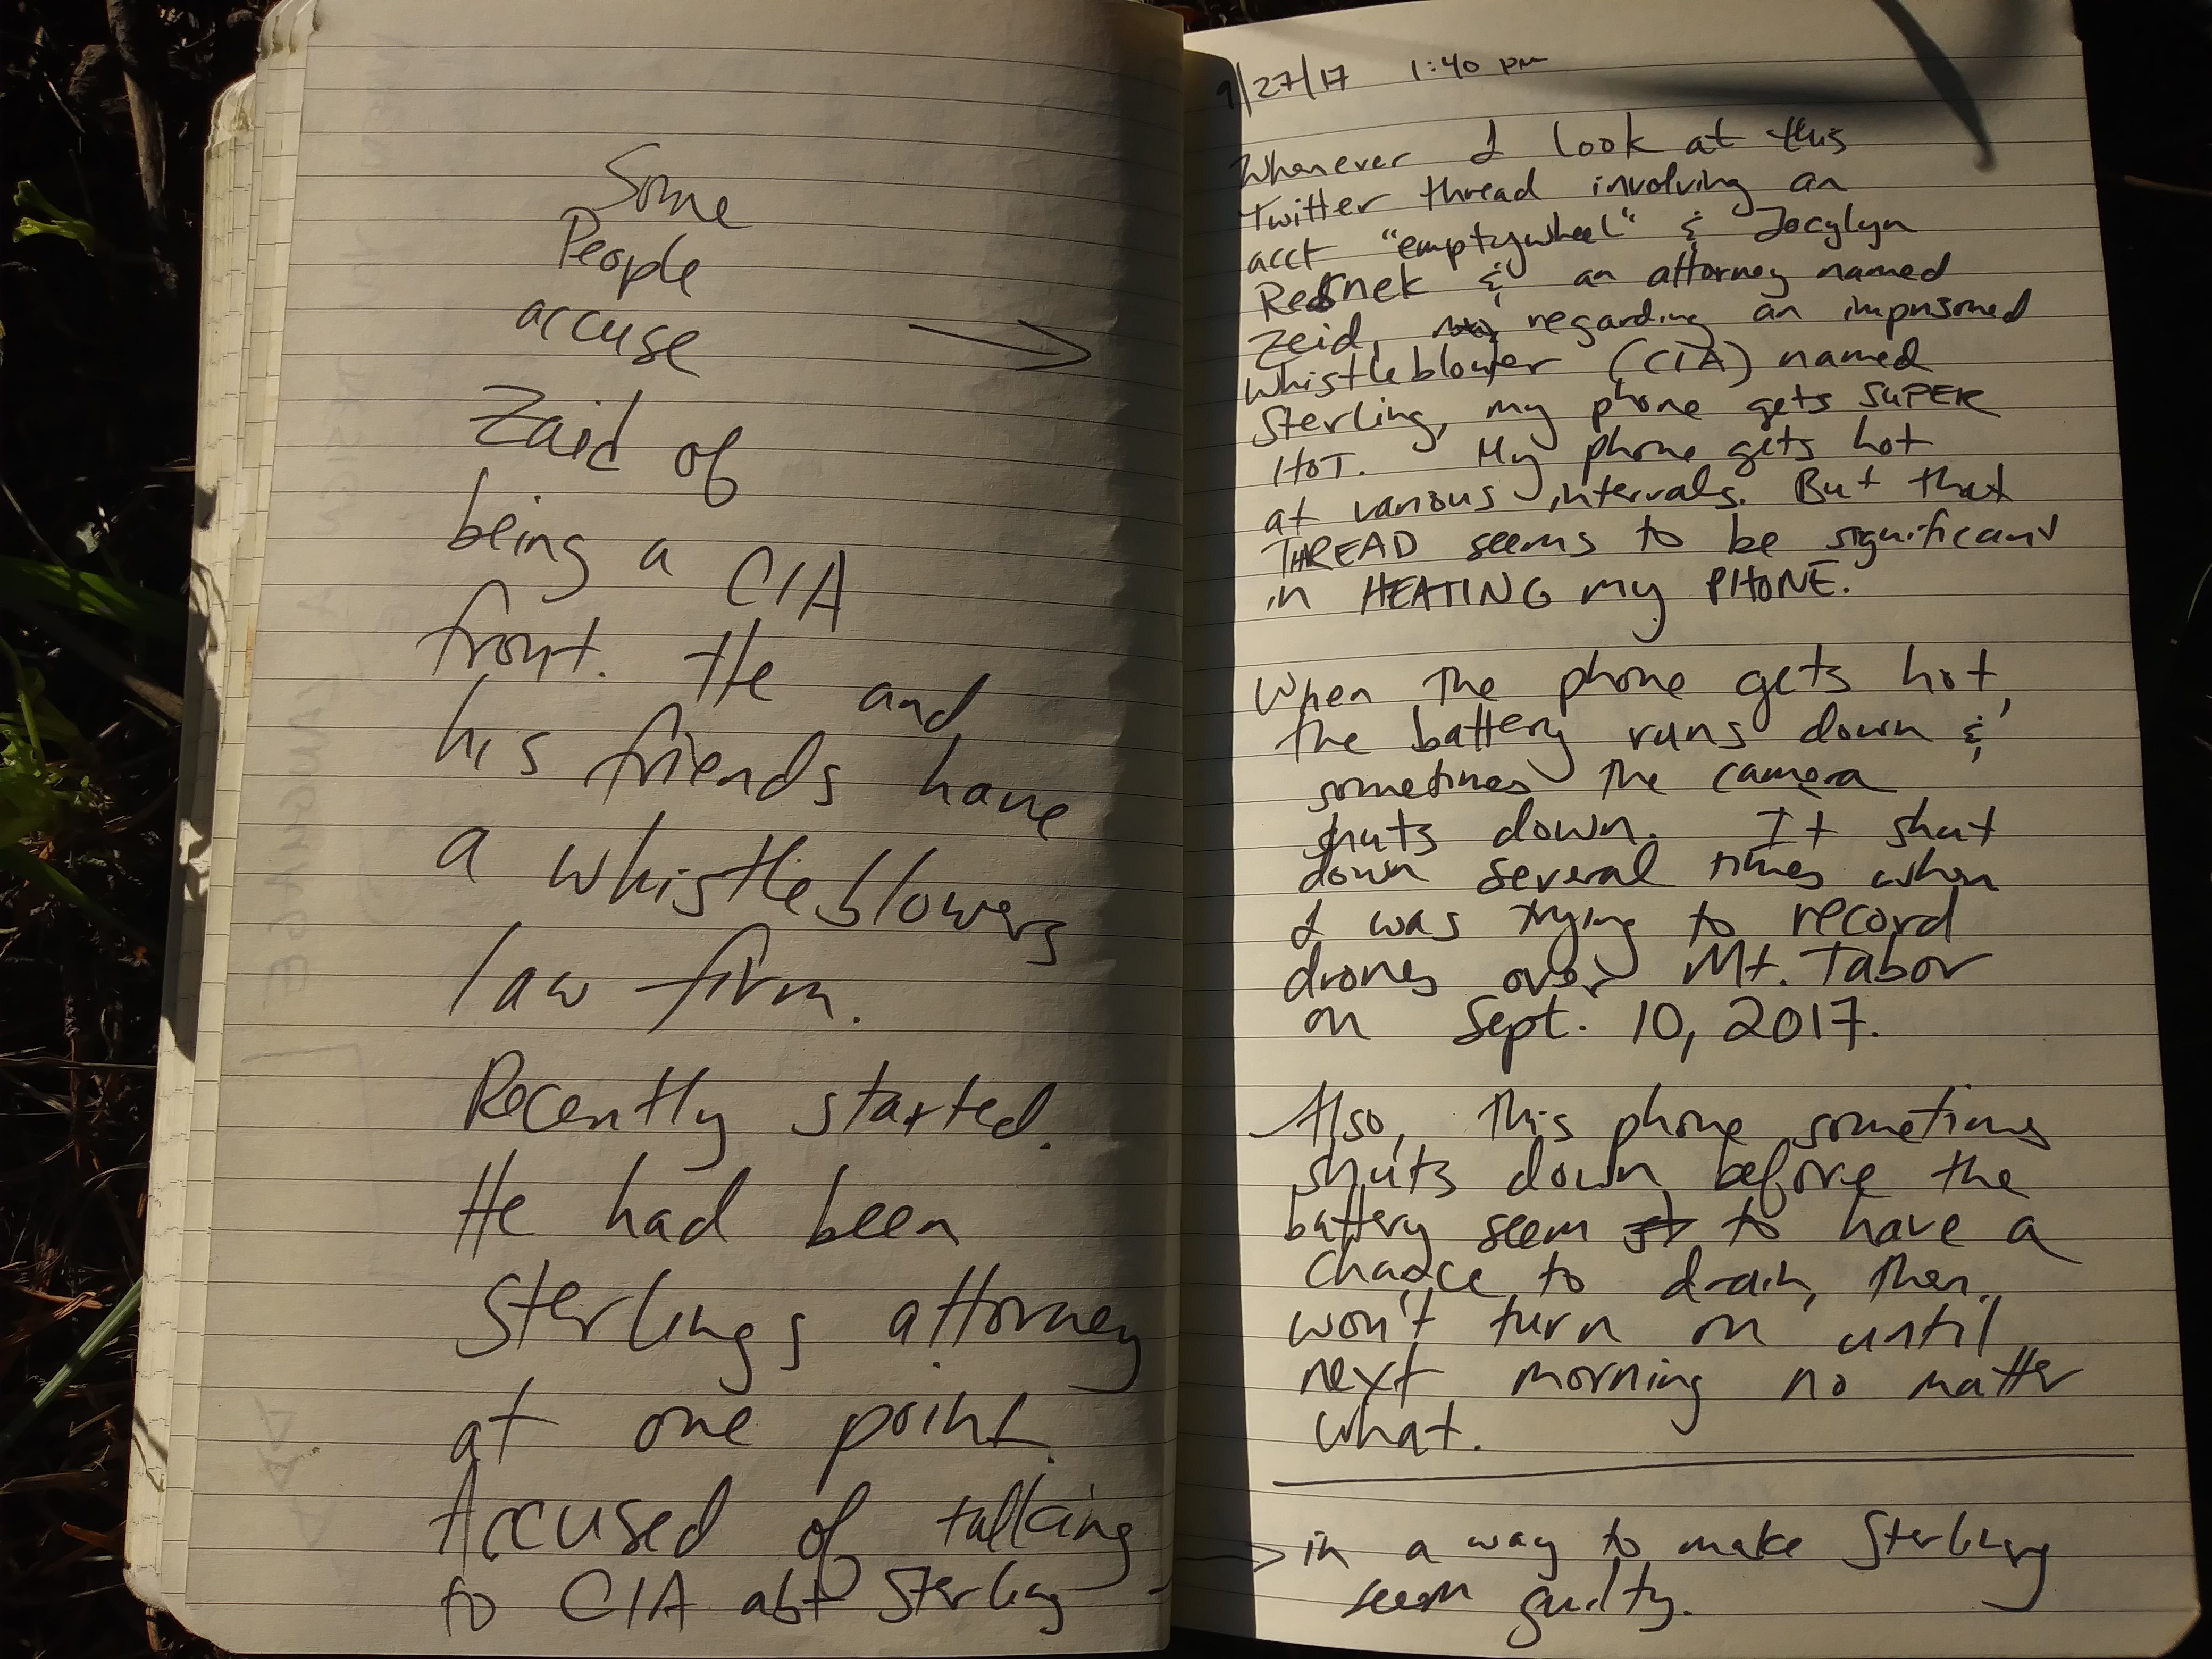 Some
People
accuse →
Zaid of
being a CIA
front. He and
his friends have
a whistleblowers
law firm.
Recently started.
He had been
Sterlings attorney
at one point.
Accused of talking
to CIA abt Sterling
9/27/17 1:40 pm
Whenever I look at this
Twitter thread involving an
acct "emptywheel" & Jocylyn
& an attorney named
Zeid, regarding an imprisoned
whistleblower (CIA) named
Sterling, my phone gets SUPER
HOT. My phone gets hot
at various intervals. But that
THREAD seems to be significant
in HEATING my PHONE.
When the phone gets hot,
the battery runs down &
sometimes the camera
shuts down. It shut
down several times when
I was trying to record
drones over Mt. Tabor
on Sept. 10, 2017.
Also, this phone sometimes
shuts down before the
battery seem to have a
chance to drain, then
won't turn on until
next morning no matter
what.
→ in a way to make Sterling
seem guilty.